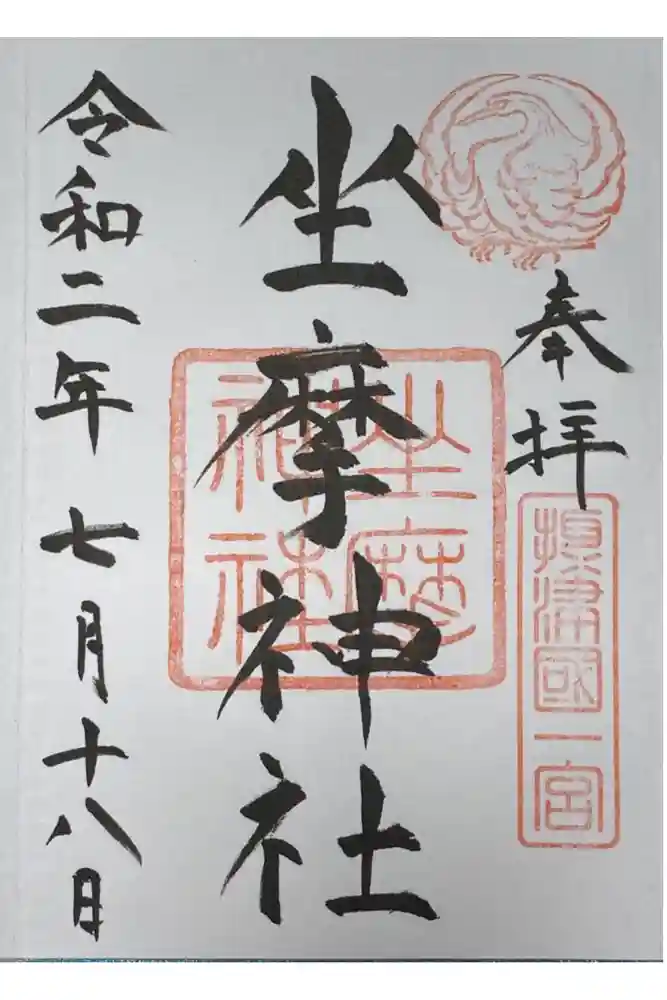 奉拝
摂津國一宮
坐摩神社
坐摩神社
令和二年 七月十八日